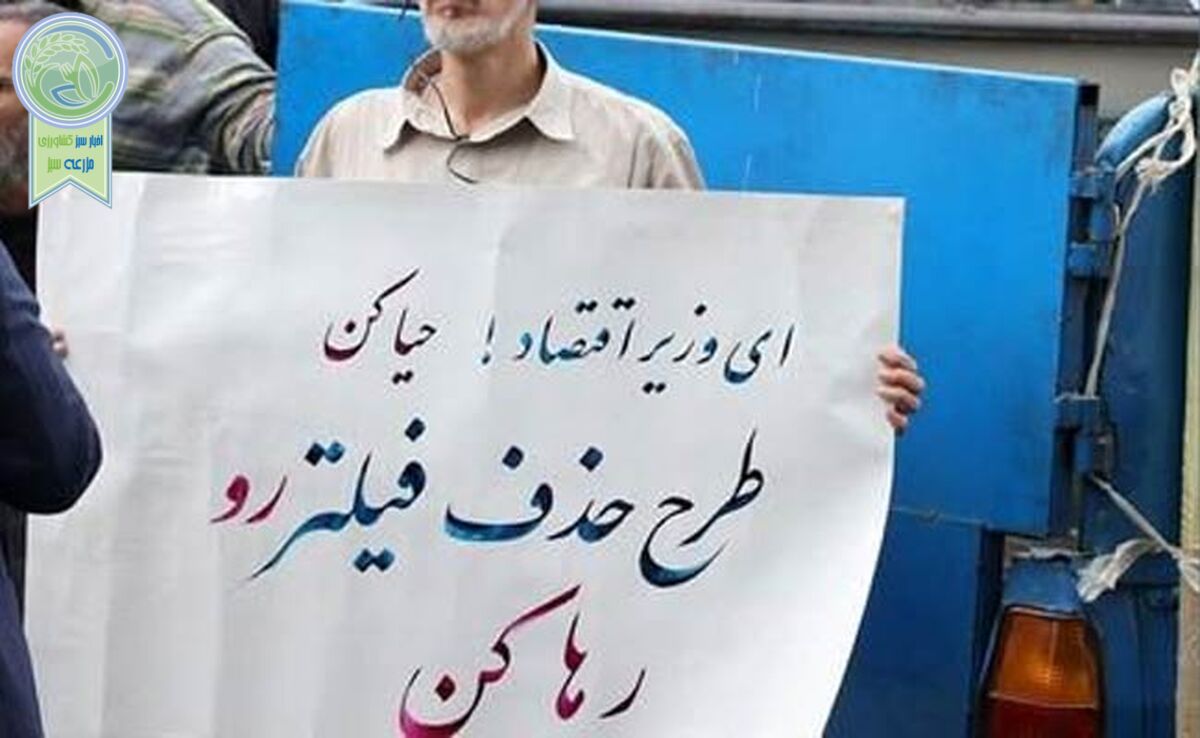 اخبار سبز کشاورزی
مزرعه سبز
ای وزیر اقتصاد ! حیا کن
طرح حذف فیلتر رو
رها کن